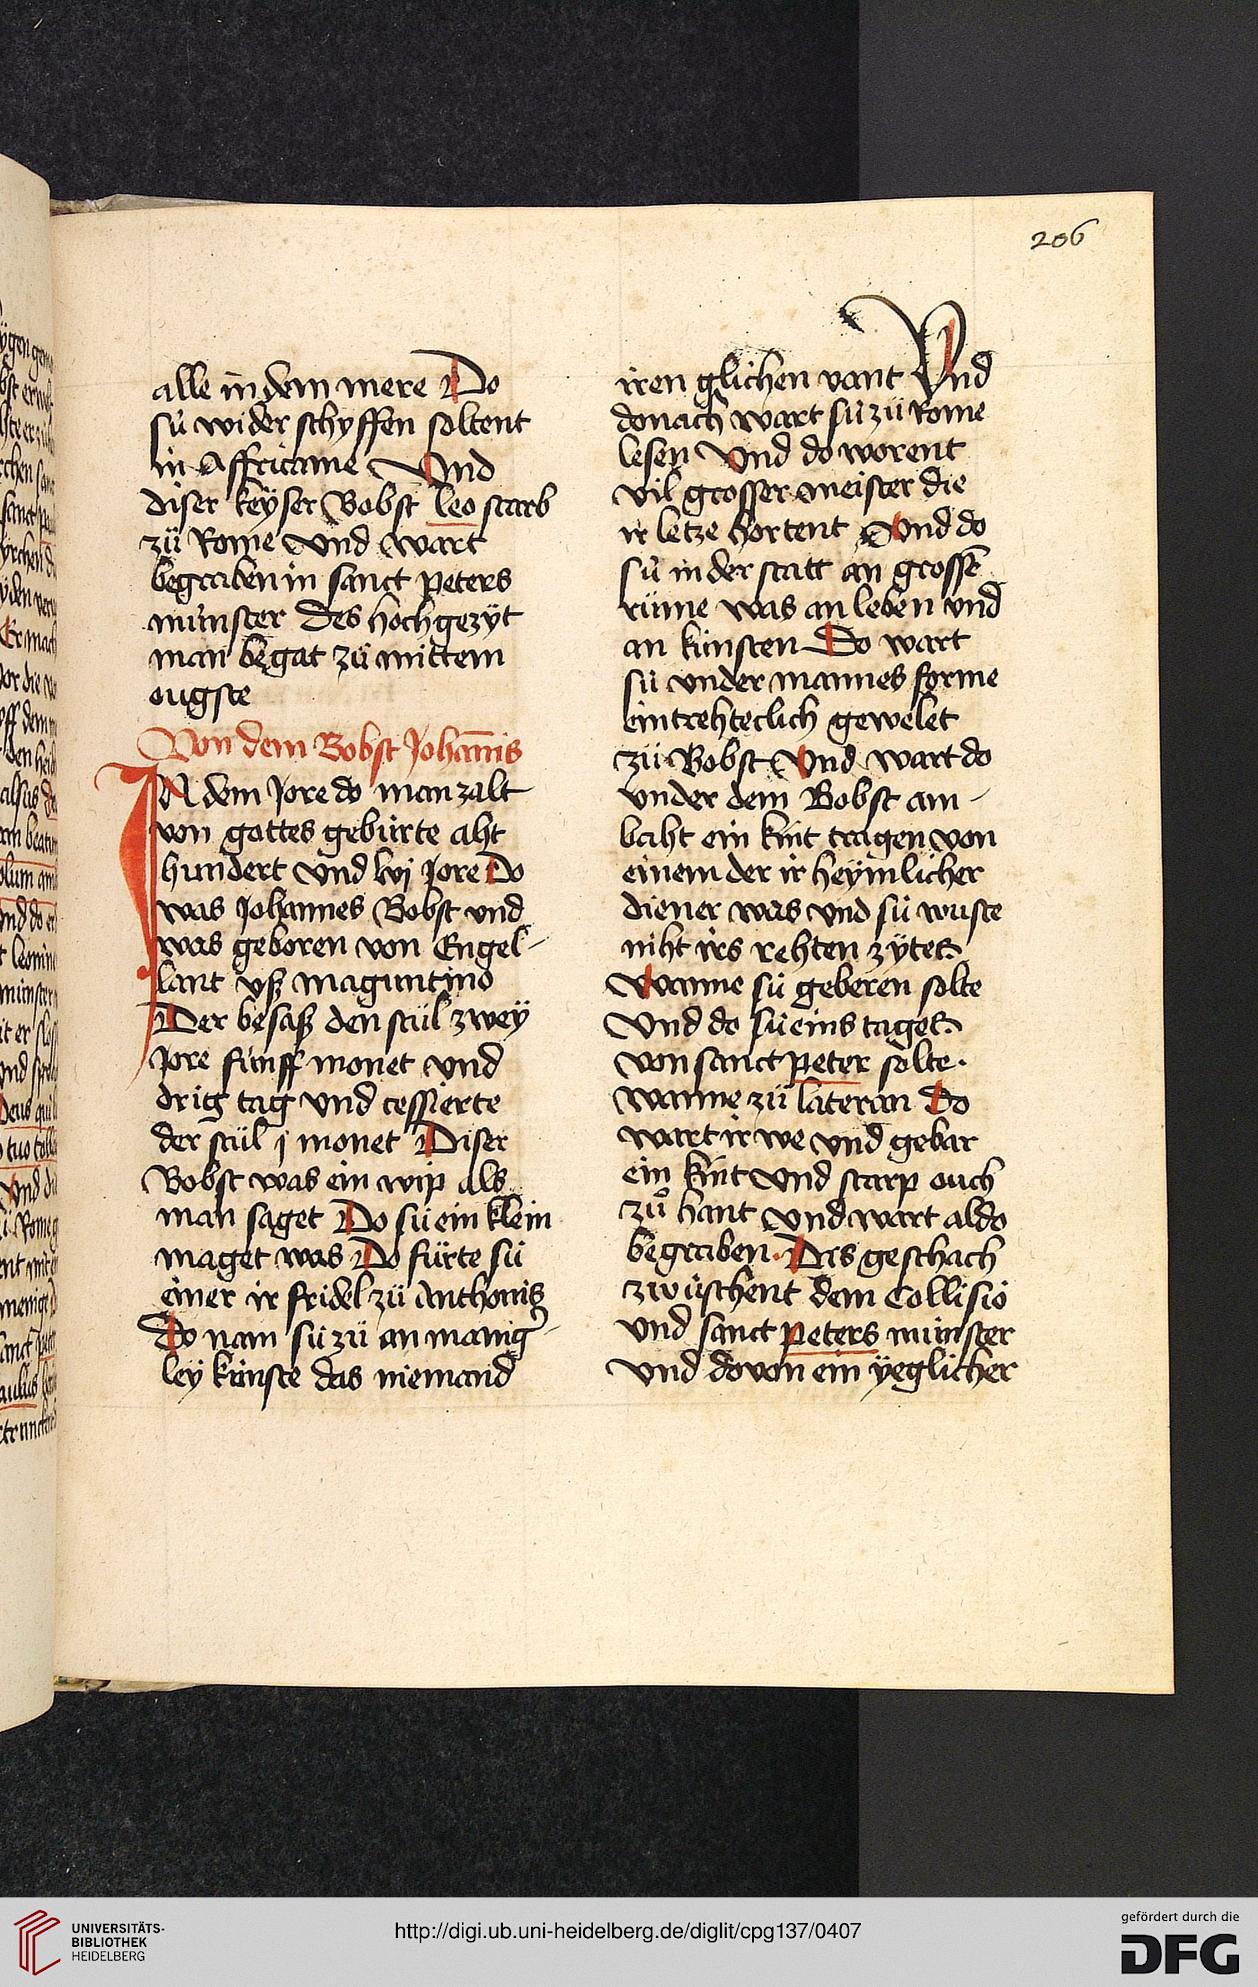 206
alle in dem mere Do
sü wider schyffen soltent
in Affricame Und
diser keyser Bobst Leo starb
zü Rome Und wart
begraben in sanct peters
münster des hochgezyt
man begat zü mittem
ougste
Von dem Bobst Johañis
IN dem Jore do man zalt
von gottes gebürte aht
hundert Und lvj Jore Do
was Johannes Bobst und
was geboren von Engel-
lant vsz maguntino
Der besasz den stül zwey
Jore fünff monet Und
drig tag Und cessierte
der stül j monet Diser
Bobst was ein wip als
man saget Do sü ein klein
maget was Do fürte sü
einer ir fridel zü Anthonis
Do nam sü zü an manig
ley künste das niemand
iren glichen vant Und
donach wart sü zü Rome
lesen Und do worent
vil grosser meister die
ir letze hortent Und do
sü in der statt an grossē
rüme was an leben vnd
an künsten Do wart
sü vnder mannes forme
eintrehteclich gewelet
zü Bobst Und wart do
vnder dem Bobst am-
baht ein kint tragen von
einem der ir heymlicher
diener was vnd sü wuste
niht irs rehten zytes
Wanne sü geberen solte
Und do sü eins tages
von sanct peter solte.
wanne zü lateran Do
wart ir we vnd gebar
ein kint Und starp ouch
zuͦ hant Und wart aldo
begraben. Dis geschach
zwüschent dem Collisio
vnd sanct peters münster
vnd dovon ein yeglicher
UNIVERSITÄTS-
BIBLIOTHEK
HEIDELBERG
http://digi.ub.uni-heidelberg.de/diglit/cpg137/0407
gefördert durch die
DFG